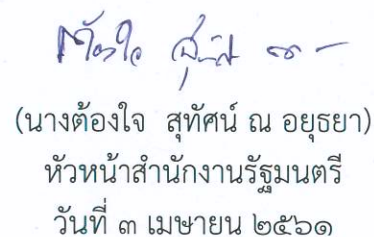 ต้องใจ สุทัศน์ ณ
(นางต้องใจ สุทัศน์ ณ อยุธยา)
หัวหน้าสำนักงานรัฐมนตรี
วันที่ ๓ เมษายน ๒๕๖๑